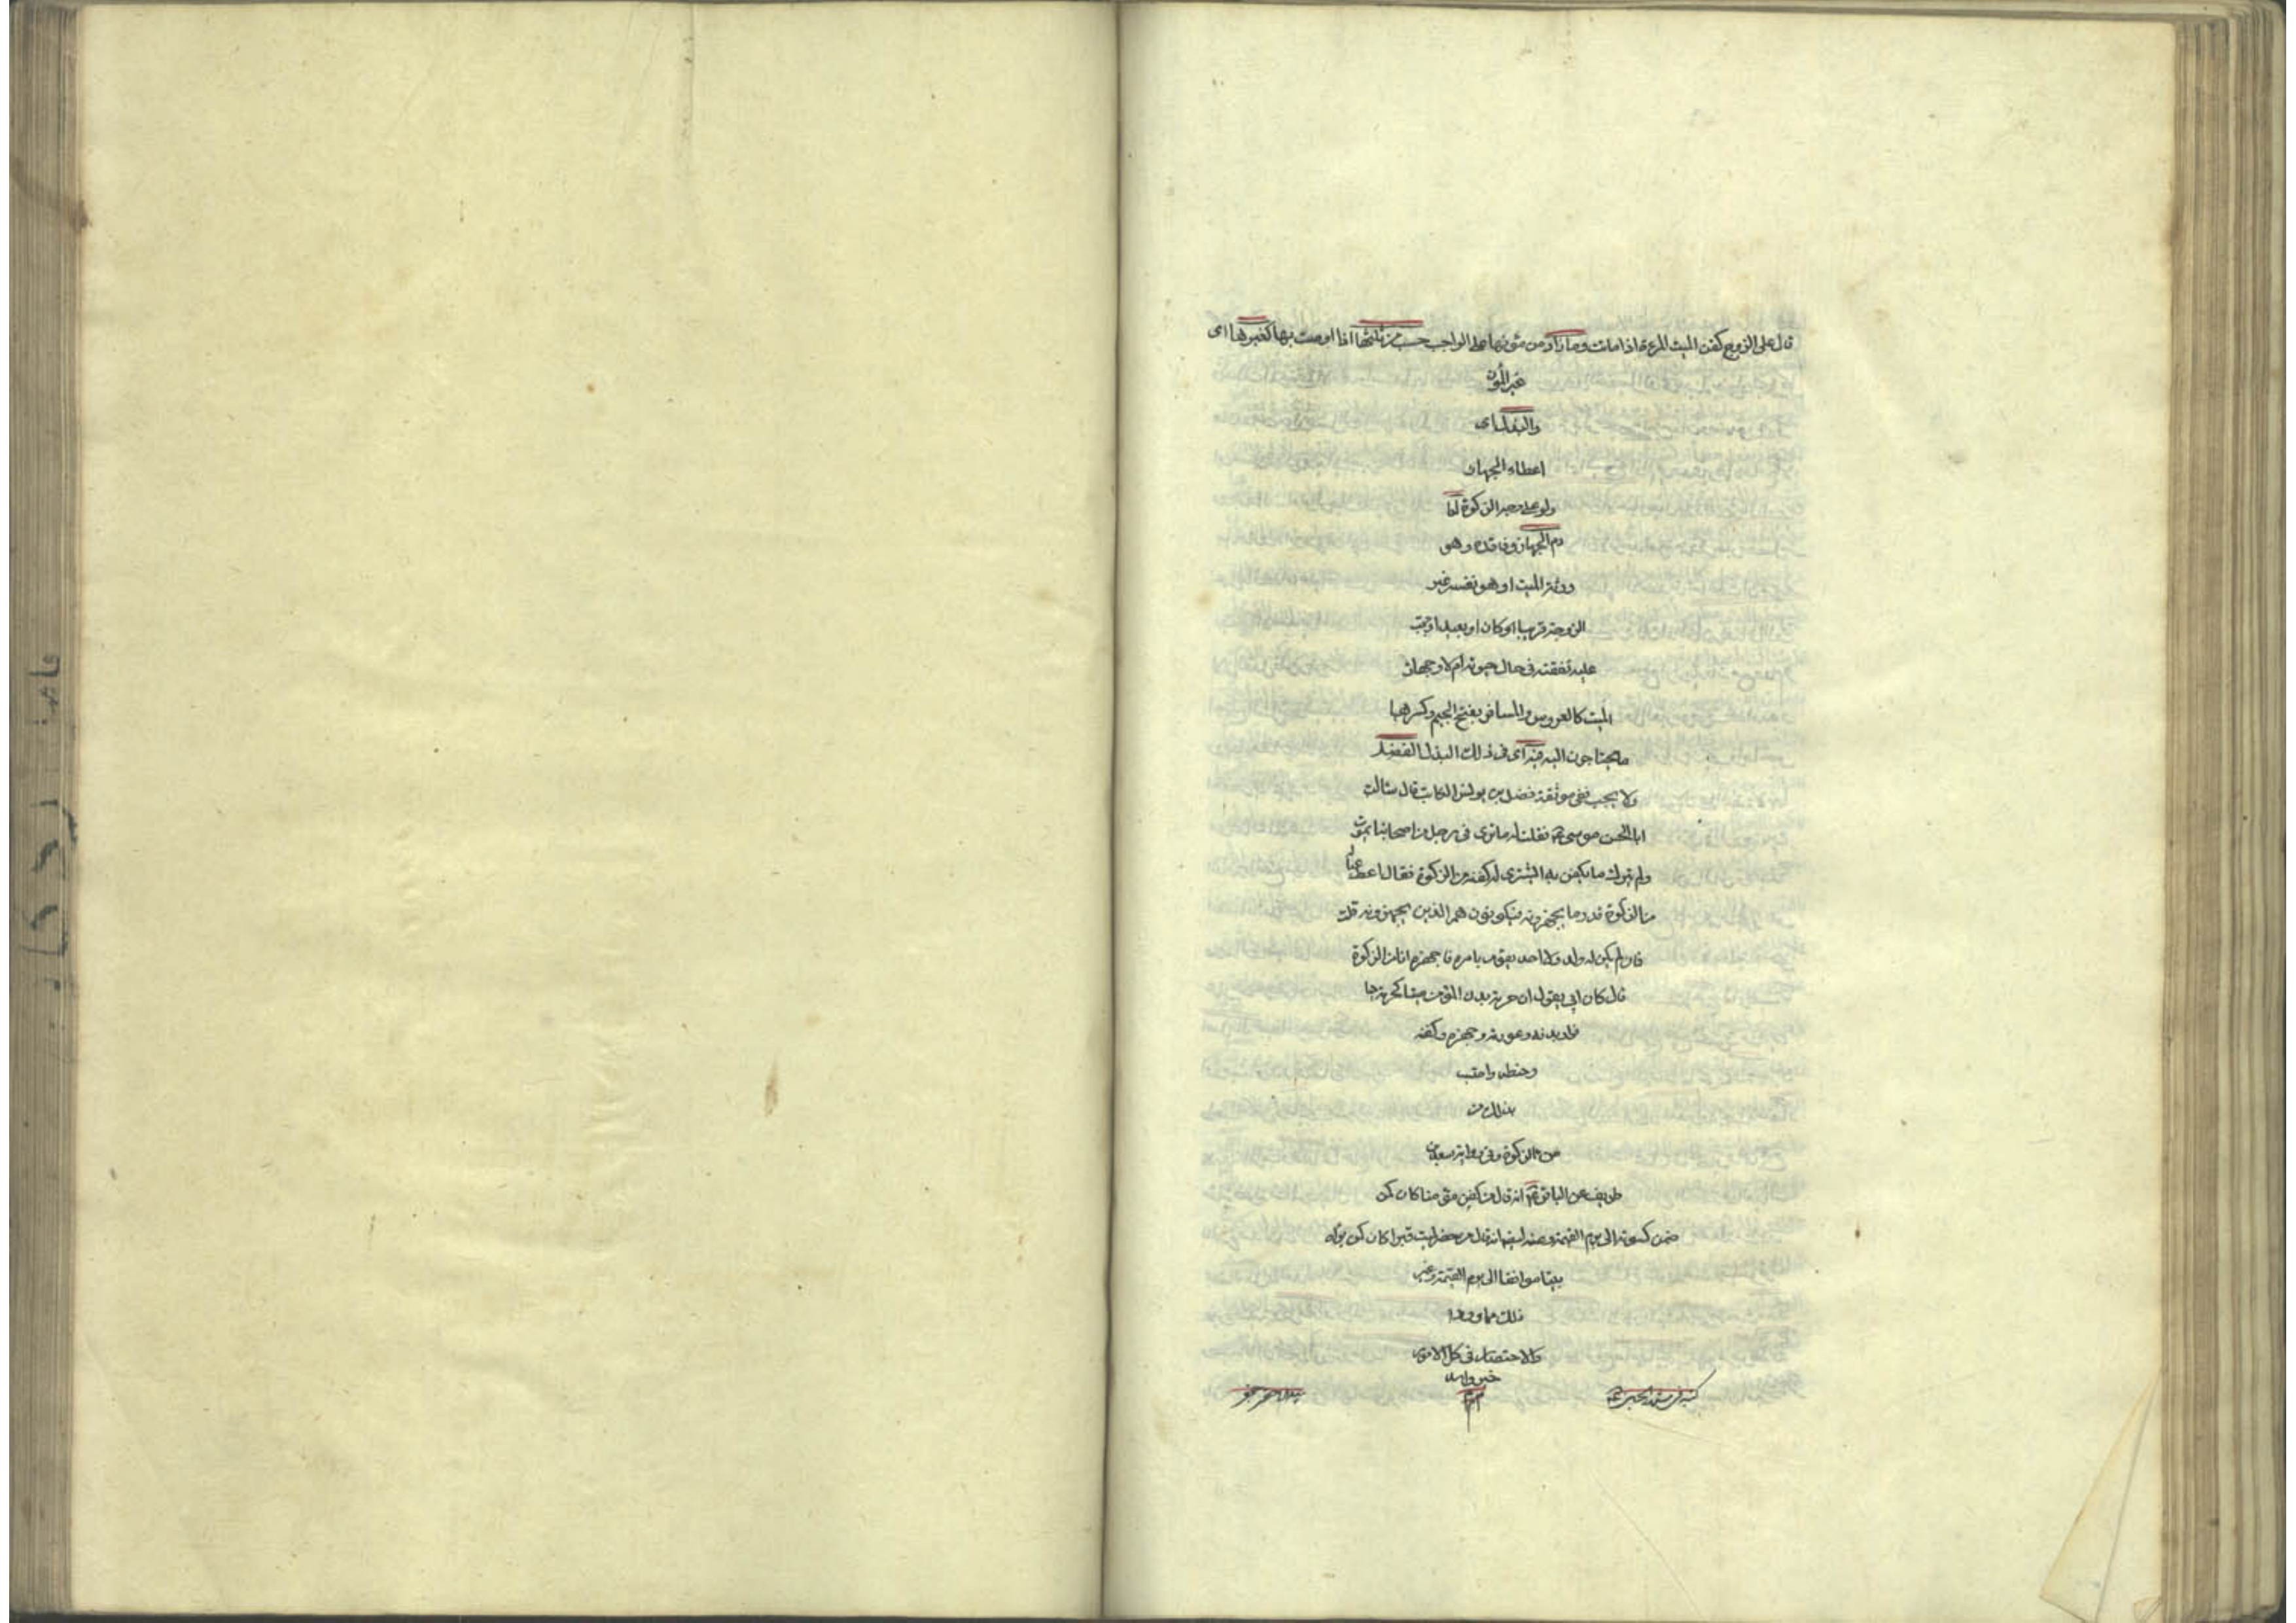 قال على الزوج كفن الميت المرءة اذا ماتت وما زاد من مئونها على الواجب حسب من ثلثها اذا اوصت بها كغيرها اى
غير المؤن
والبذل اى
اعطاء الجهاز
ولو على وجه الزكوة لعا
دم الجهاز وفاقده وهو
ورثة الميت او هو نفسه غير
الزوجة قريبا كان او بعيدا وجبت
عليه نفقته فى حال حيوته ام لا وجهاز
الميت كالعروس والمسافر بفتح الجيم وكسرها
ما يحتاجون اليه فيه اى فى ذلك البذل الفضل
ولا يجب ففى موثقة فضل بن يونس الكاتب قال سالت
ابا الحسن موسى ع فقلت له ما ترى فى رجل من اصحابنا يموت
ولم يترك ما يكفن به اشترى له كفنه من الزكوة فقال اعط عياله
من الزكوة قدر ما يجهزونه فيكونون هم الذين يجهزونه قلت
فان لم يكن له ولد ولا احد يقوم بامره فاجهزه انا من الزكوة
قال كان ابى يقول ان حرمة بدن المؤمن ميتا كحرمته حيا
فوار بدنه وعورته وجهزه وكفنه
وحنطه واحتسب
بذلك من
من الزكوة وفى رواية سعد بن
طريف عن الباقر ع انه قال من كفن مؤمنا كان كمن
ضمن كسوته الى يوم القيمة وعنه ايضا انه قال من حفر لميت قبرا كان كمن بواه
بيتا موافقا الى يوم القيمة وغير
ذلك مما ورد
والاختصار فى كل الامور
خير والله